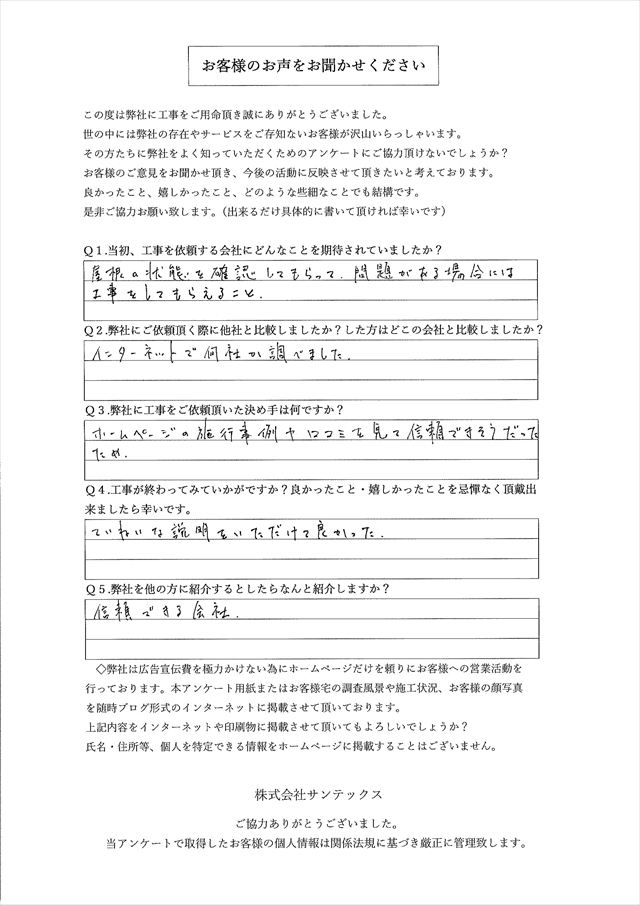 お客様のお声をお聞かせください
この度は弊社に工事をご用命頂き誠にありがとうございました。
世の中には弊社の存在やサービスをご存知ないお客様が沢山いらっしゃいます。
その方たちに弊社をよく知っていただくためのアンケートにご協力頂けないでしょうか？
お客様のご意見をお聞かせ頂き、今後の活動に反映させて頂きたいと考えております。
良かったこと、嬉しかったこと、どのような些細なことでも結構です。
是非ご協力お願い致します。（出来るだけ具体的に書いて頂ければ幸いです）
Ｑ１.当初、工事を依頼する会社にどんなことを期待されていましたか？
屋根の状態を確認してもらって、問題がある場合には
工事をしてもらえること.
Ｑ２.弊社にご依頼頂く際に他社と比較しましたか？した方はどこの会社と比較しましたか？
インターネットで何社か調べました.
Ｑ３.弊社に工事をご依頼頂いた決め手は何ですか？
ホームページの施行事例や口コミを見て信頼できそうだった
ため.
Ｑ４.工事が終わってみていかがですか？良かったこと・嬉しかったことを忌憚なく頂戴出
来ましたら幸いです。
ていねいな説明をいただけて良かった.
Ｑ５.弊社を他の方に紹介するとしたらなんと紹介しますか？
信頼できる会社.
◇弊社は広告宣伝費を極力かけない為にホームページだけを頼りにお客様への営業活動を
行っております。本アンケート用紙またはお客様宅の調査風景や施工状況、お客様の顔写真
を随時ブログ形式のインターネットに掲載させて頂いております。
上記内容をインターネットや印刷物に掲載させて頂いてもよろしいでしょうか？
氏名・住所等、個人を特定できる情報をホームページに掲載することはございません。
株式会社サンテックス
ご協力ありがとうございました。
当アンケートで取得したお客様の個人情報は関係法規に基づき厳正に管理致します。